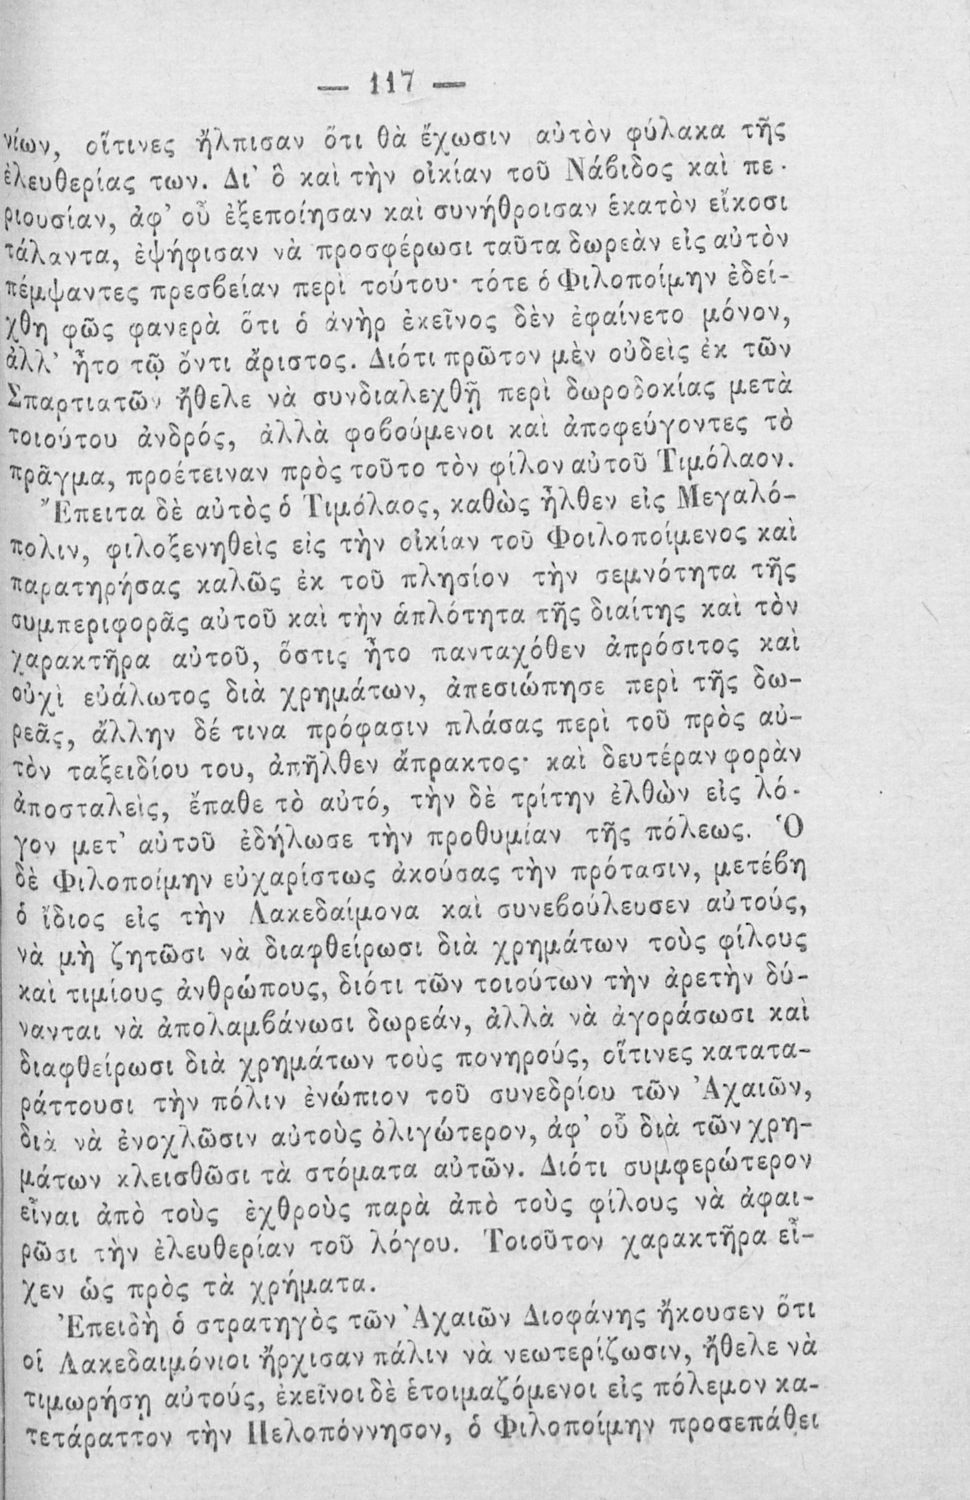 — 117 —
νίων, οἵτινες ἤλπισαν ὅτι θὰ ἔχωσιν αὐτὸν φύλακα τῆς
ἐλευθερίας των. Δι' ὃ καὶ τὴν οἰκίαν τοῦ Νάβιδος καὶ πε-
ριουσίαν, ἀφ' οὗ ἐξεποίησαν καὶ συνήθροισαν ἑκατὸν εἴκοσι
τάλαντα, ἐψήφισαν νὰ προσφέρωσι ταῦτα δωρεὰν εἰς αὐτὸν
πέμψαντες πρεσβείαν περὶ τούτου· τότε ὁ Φιλοποίμην ἐδεί-
χθη φῶς φανερὰ ὅτι ὁ ἀνὴρ ἐκεῖνος δὲν ἐφαίνετο μόνον,
ἀλλ' ἦτο τῷ ὄντι ἄριστος. Διότι πρῶτον μὲν οὐδεὶς ἐκ τῶν
Σπαρτιατῶν ἤθελε νὰ συνδιαλεχθῇ περὶ δωροδοκίας μετὰ
τοιούτου ἀνδρός, ἀλλὰ φοβούμενοι καὶ ἀποφεύγοντες τὸ
πρᾶγμα, προέτειναν πρὸς τοῦτο τὸν φίλον αὐτοῦ Τιμόλαον.
Ἔπειτα δὲ αὐτὸς ὁ Τιμόλαος, καθὼς ἦλθεν εἰς Μεγαλό-
πολιν, φιλοξενηθεὶς εἰς τὴν οἰκίαν τοῦ Φοιλοποίμενος καὶ
παρατηρήσας καλῶς ἐκ τοῦ πλησίον τὴν σεμνότητα τῆς
συμπεριφορᾶς αὐτοῦ καὶ τὴν ἁπλότητα τῆς διαίτης καὶ τὸν
χαρακτῆρα αὐτοῦ, ὅστις ἦτο πανταχόθεν ἀπρόσιτος καὶ
οὐχὶ εὐάλωτος διὰ χρημάτων, ἀπεσιώπησε περὶ τῆς δω-
ρεᾶς, ἄλλην δέ τινα πρόφασιν πλάσας περὶ τοῦ πρὸς αὐ-
τὸν ταξειδίου του, ἀπῆλθεν ἄπρακτος· καὶ δευτέραν φορὰν
ἀποσταλεὶς, ἔπαθε τὸ αὐτό, τὴν δὲ τρίτην ἐλθὼν εἰς λό-
γον μετ' αὐτοῦ ἐδήλωσε τὴν προθυμίαν τῆς πόλεως. Ὁ
δὲ Φιλοποίμην εὐχαρίστως ἀκούσας τὴν πρότασιν, μετέβη
ὁ ἴδιος εἰς τὴν Λακεδαίμονα καὶ συνεβούλευσεν αὐτούς,
νὰ μὴ ζητῶσι νὰ διαφθείρωσι διὰ χρημάτων τοὺς φίλους
καὶ τιμίους ἀνθρώπους, διότι τῶν τοιούτων τὴν ἀρετὴν δύ-
νανται νὰ ἀπολαμβάνωσι δωρεάν, ἀλλὰ νὰ ἀγοράσωσι καὶ
διαφθείρωσι διὰ χρημάτων τοὺς πονηρούς, οἵτινες κατατα-
ράττουσι τὴν πόλιν ἐνώπιον τοῦ συνεδρίου τῶν Ἀχαιῶν,
διὰ νὰ ἐνοχλῶσιν αὐτοὺς ὀλιγώτερον, ἀφ' οὗ διὰ τῶν χρη-
μάτων κλεισθῶσι τὰ στόματα αὐτῶν. Διότι συμφερώτερον
εἶναι ἀπὸ τοὺς ἐχθροὺς παρὰ ἀπὸ τοὺς φίλους νὰ ἀφαι-
ρῶσι τὴν ἐλευθερίαν τοῦ λόγου. Τοιοῦτον χαρακτῆρα εἶ-
χεν ὡς πρὸς τὰ χρήματα.
Ἐπειδὴ ὁ στρατηγὸς τῶν Ἀχαιῶν Διοφάνης ἤκουσεν ὅτι
οἱ Λακεδαιμόνιοι ἤρχισαν πάλιν νὰ νεωτερίζωσιν, ἤθελε νὰ
τιμωρήσῃ αὐτούς, ἐκεῖνοι δὲ ἑτοιμαζόμενοι εἰς πόλεμον κα-
τετάραττον τὴν Πελοπόννησον, ὁ Φιλοποίμην προσεπάθει